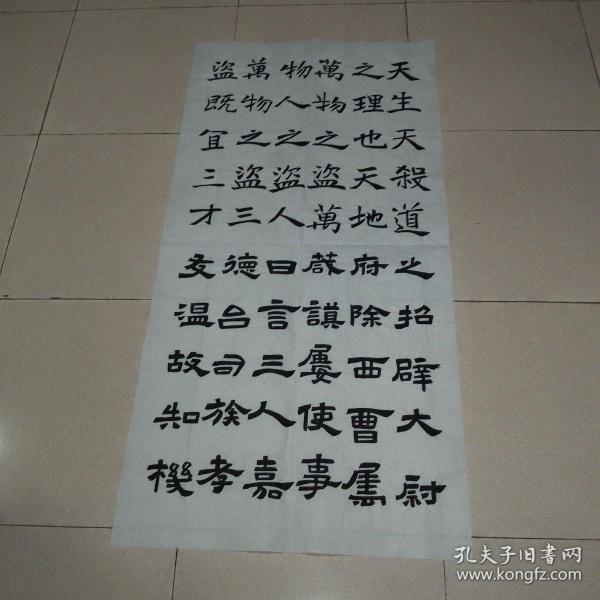 天生天殺道之招辟大尉
之理也天地府除西曹屬
萬物之盜萬謨屢使事
物人之盜人曰言三人嘉
萬物之盜三德台司族孝
盜既宜三才友温故知機
孔夫子旧書网
www.kongfz.com